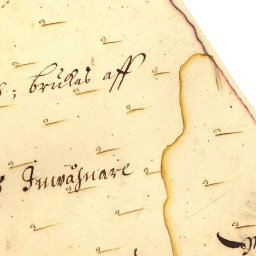 brukas aff
Inwåhnare